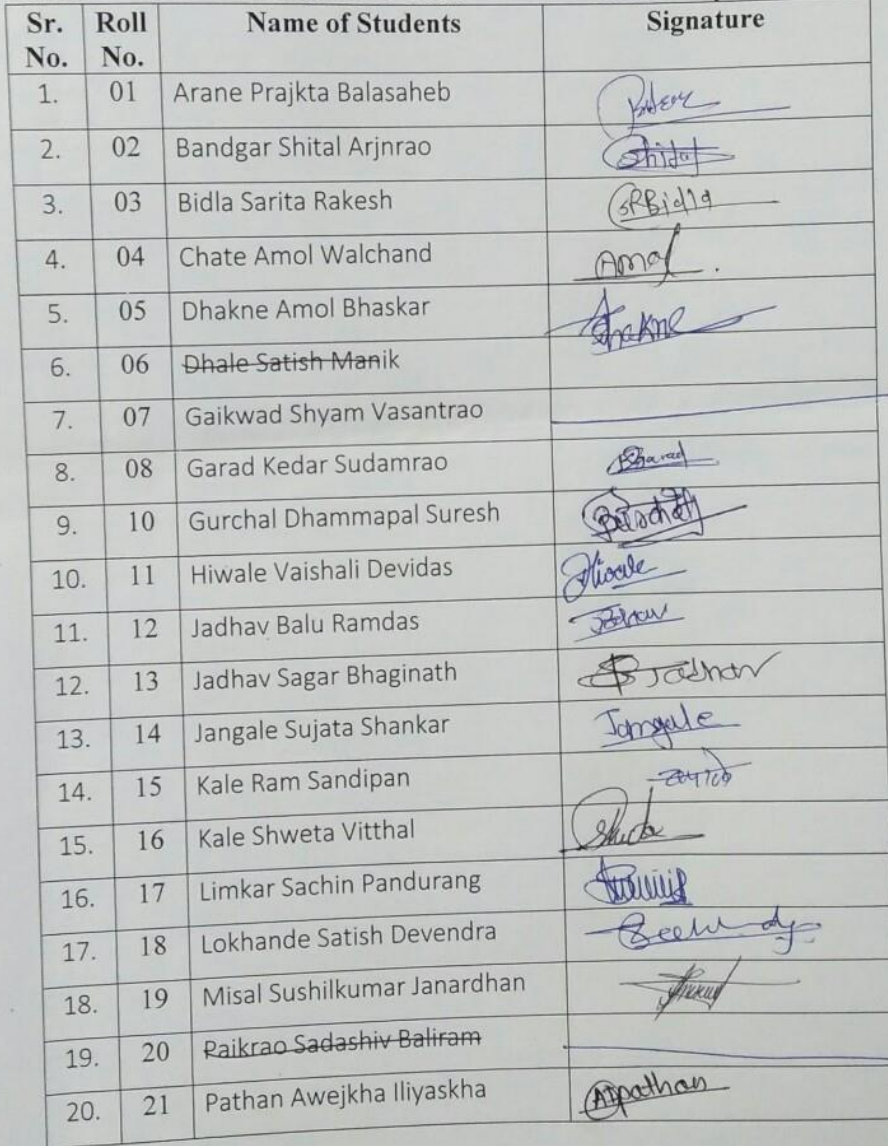 Sr. No. Roll No. Name of Students Signature
1. 01 Arane Prajkta Balasaheb
2. 02 Bandgar Shital Arjnrao Shital
3. 03 Bidla Sarita Rakesh SRBidla
4. 04 Chate Amol Walchand Amol
5. 05 Dhakne Amol Bhaskar Dhakne
6. 06 Dhale Satish Manik
7. 07 Gaikwad Shyam Vasantrao
8. 08 Garad Kedar Sudamrao
9. 10 Gurchal Dhammapal Suresh
10. 11 Hiwale Vaishali Devidas Hiwale
11. 12 Jadhav Balu Ramdas Jadhav
12. 13 Jadhav Sagar Bhaginath Jadhav
13. 14 Jangale Sujata Shankar Jangale
14. 15 Kale Ram Sandipan
15. 16 Kale Shweta Vitthal
16. 17 Limkar Sachin Pandurang
17. 18 Lokhande Satish Devendra
18. 19 Misal Sushilkumar Janardhan
19. 20 Paikrao Sadashiv Baliram
20. 21 Pathan Awejkha Iliyaskha AIpathan